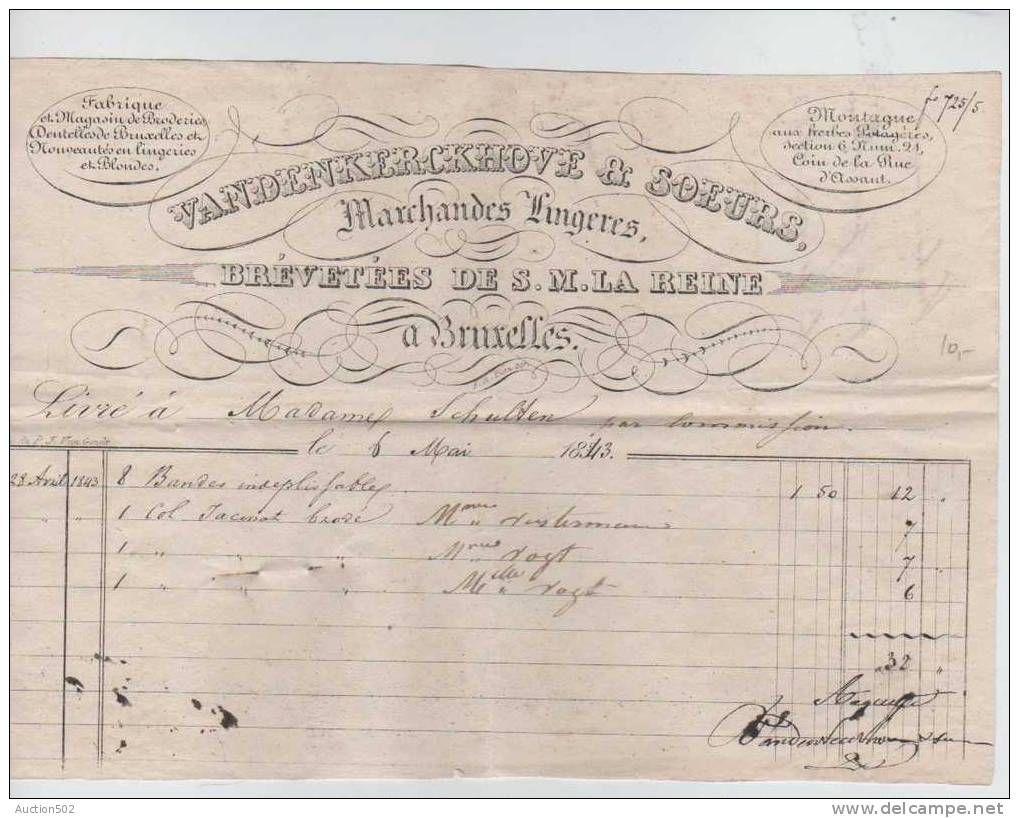 fo 725/5
Fabrique
et Magasin de Broderies
Dentelles de Bruxelles et
Nouveautés en lingeries
et Blondes.
Montagne
aux herbes Potagères,
section 6 Num. 21,
Coin de la Rue
d'Assaut.
VANDENKERCKHOVE & SOEURS,
Marchandes Lingeres,
BRÉVETÉES DE S. M. LA REINE
a Bruxelles.
10,-
Livré à Madame Schulten par Commission.
le 6 Mai 1843.
28 Avril 1843 8 Bandes indeplissables 1 50 12 "
" " 1 Col Jaconat brodé Mme 7
1 " " Mme Vogt 7 "
1 " " Melle Vogt 6
32 "
Acquitté
Auction502
delcampe.net